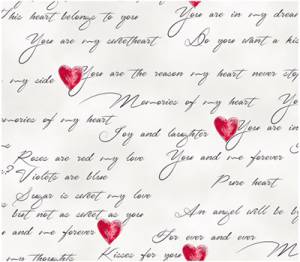 This heart belongs to you You are in my dream
You are my sweetheart Do you want a kiss
my side You are the reason my heart never sto
Memories of my heart
emories of my heart
Joy and laughter You are in
Roses are red my love You and me forever
? Violets are blue Pure heart
Sugar is sweet my love
but not as sweet as you An angel will be by
and me forever For ever and ever
my Thoughts Kisses for you M